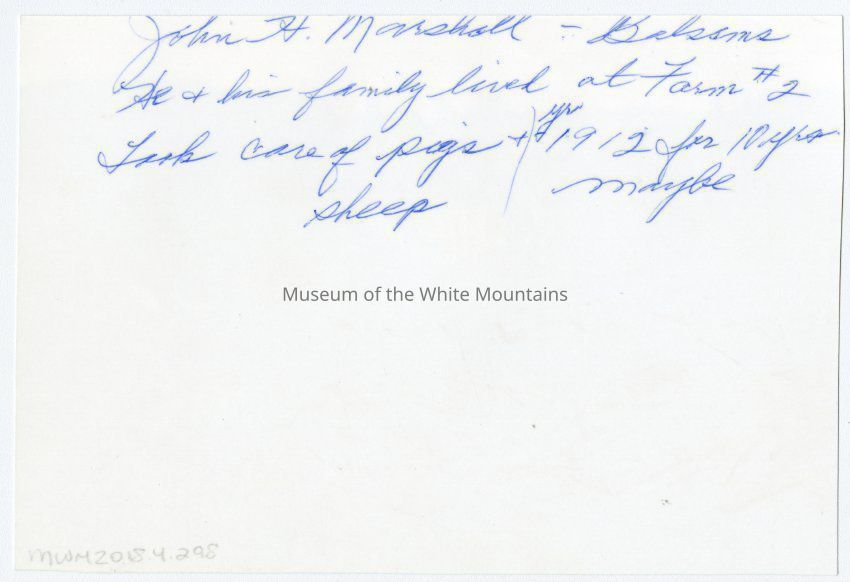 John H. Marshall - Balsams
He + his family lived at Farm #2
Took care of pigs + yr 1912 for 10 yrs.
sheep maybe
Museum of the White Mountains
MWM2018.4.298